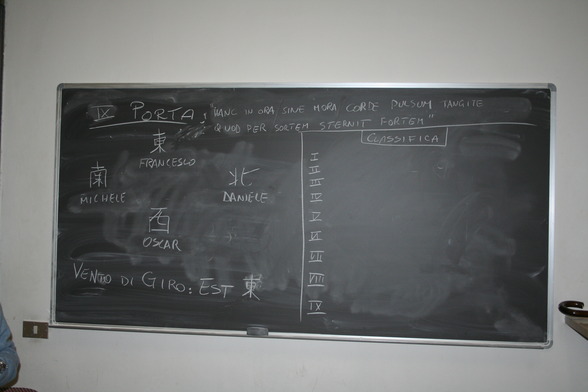 IX PORTA, "HANC IN ORA SINE MORA CORDE PULSUM TANGITE
QUOD PER SORTEM STERNIT FORTEM"
CLASSIFICA
東
FRANCESCO
南
北
MICHELE
DANIELE
西
OSCAR
VENTO DI GIRO: EST 東
I
II
III
IV
V
VI
VII
VIII
IX